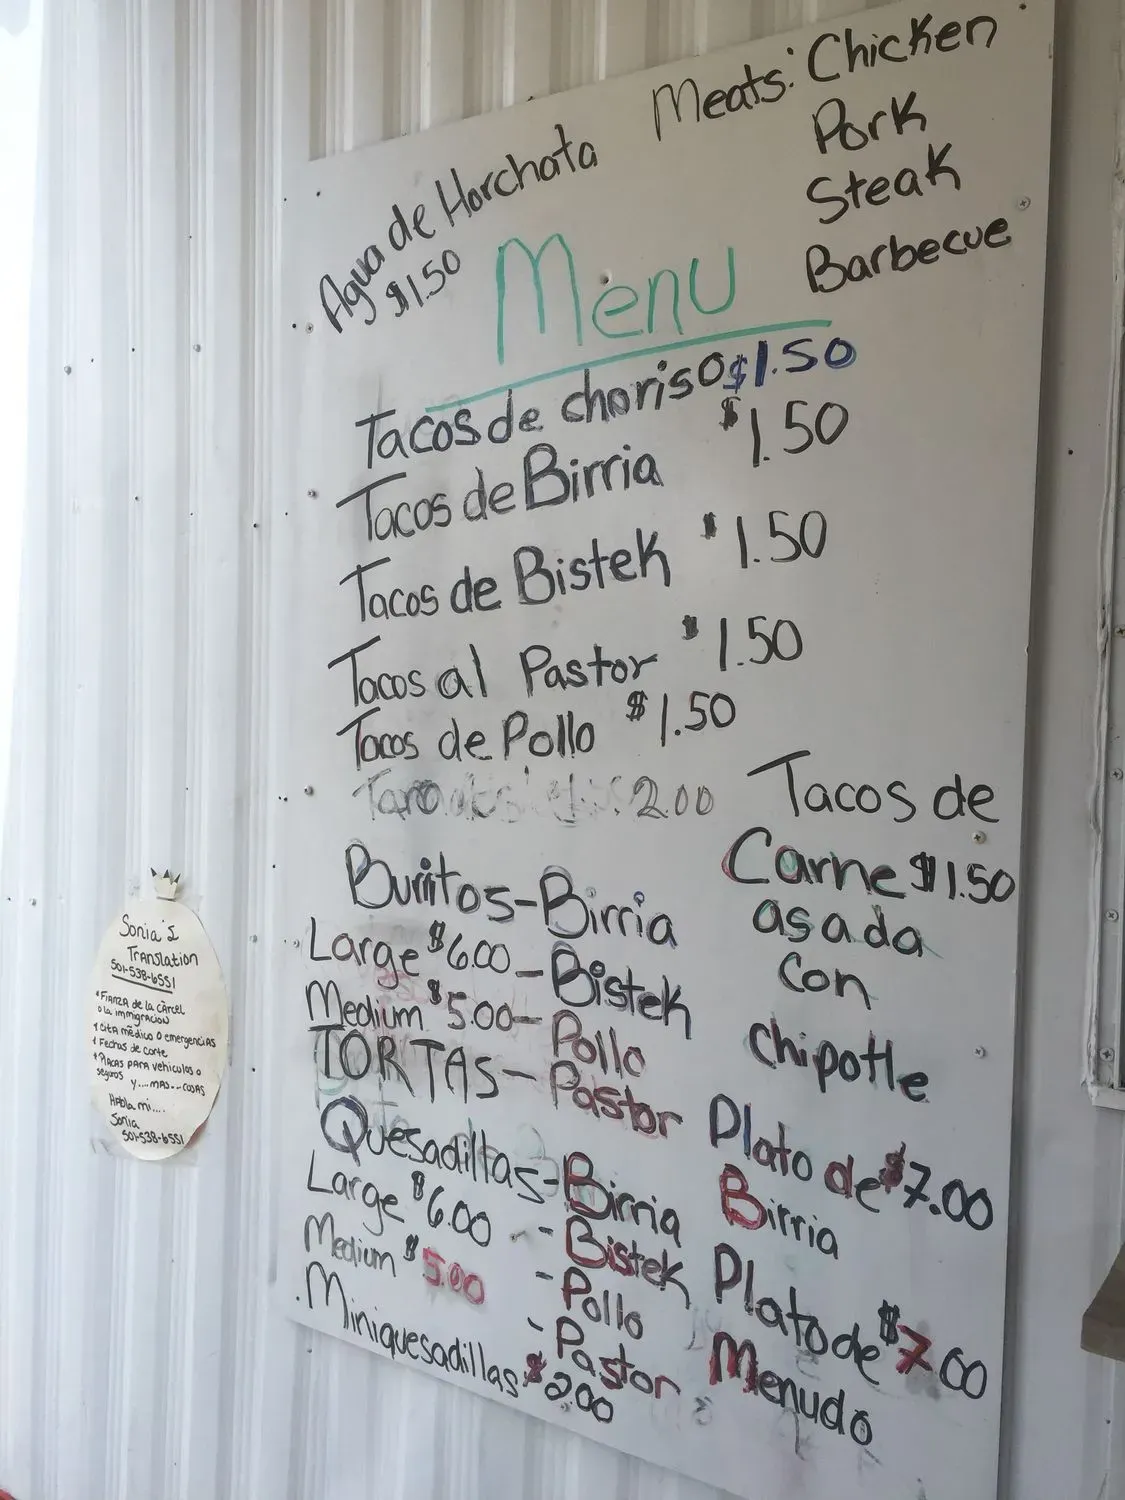 Meats: Chicken
Pork
Steak
Barbecue
Agua de Horchata
$1.50
Menu
Tacos de choriso $1.50
Tacos de Birria $1.50
Tacos de Bistek $1.50
Tacos al Pastor $1.50
Tacos de Pollo $1.50
2.00
Tacos de
Carne $1.50
asada
con
chipotle
Burritos-Birria
Large $6.00-Bistek
Medium $5.00-Pollo
TORTAS-Pastor
Quesadillas-Birria
Large $6.00 -Bistek
Medium $5.00 -Pollo
-Pastor
Miniquesadillas $2.00
Plato de $7.00
Birria
Plato de $7.00
Menudo
Sonia's
Translation
501-538-6551
*Fianza de la cárcel
o la immigracion
*Cita médico o emergencias
*Fechas de corte
*Placas para vehiculos o
seguros y....mas--cosas
Habla mi....
Sonia
501-538-6551